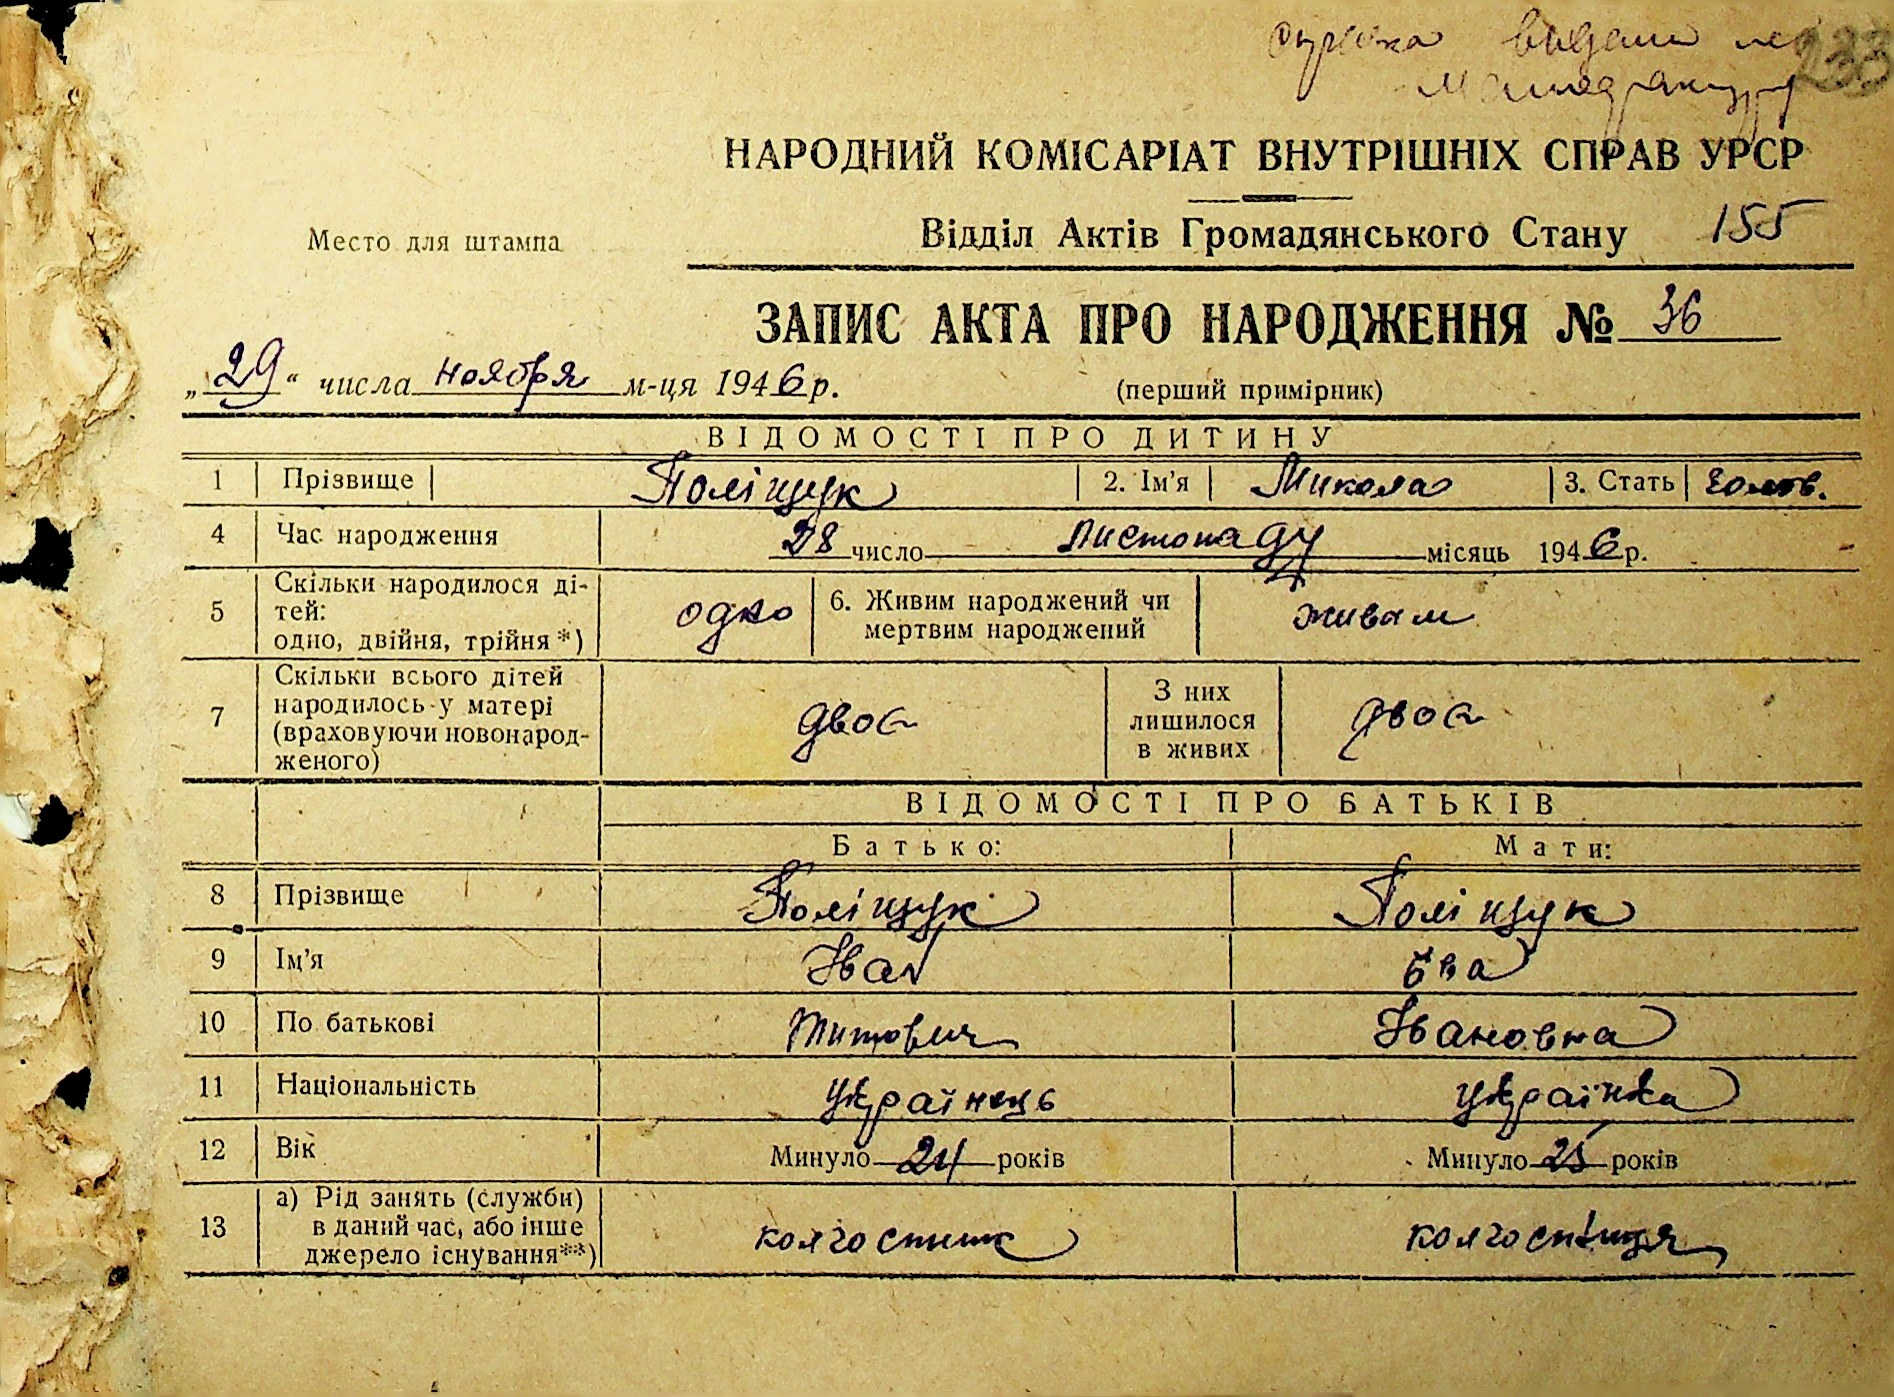 видана
233
НАРОДНИЙ КОМІСАРІАТ ВНУТРІШНІХ СПРАВ УРСР
Место для штампа
Відділ Актів Громадянського Стану 155
ЗАПИС АКТА ПРО НАРОДЖЕННЯ № 36
„29“ числа ноября м-ця 1946 р. (перший примірник)
ВІДОМОСТІ ПРО ДИТИНУ
1 Прізвище Поліщук 2. Ім'я Микола 3. Стать
4 Час народження 28 число листопаду місяць 1946 р.
5 Скільки народилося ді-
тей:
одно, двійня, трійня *) одно 6. Живим народжений чи
мертвим народжений живим
7 Скільки всього дітей
народилось у матері
(враховуючи новонарод-
женого) двоє З них
лишилося
в живих двоє
ВІДОМОСТІ ПРО БАТЬКІВ
Батько: Мати:
8 Прізвище Поліщук Поліщук
9 Ім'я Іван Єва
10 По батькові Титович Івановна
11 Національність українець українка
12 Вік Минуло 24 років Минуло 25 років
13 а) Рід занять (служби)
в даний час, або інше
джерело існування**) колгоспник колгоспниця